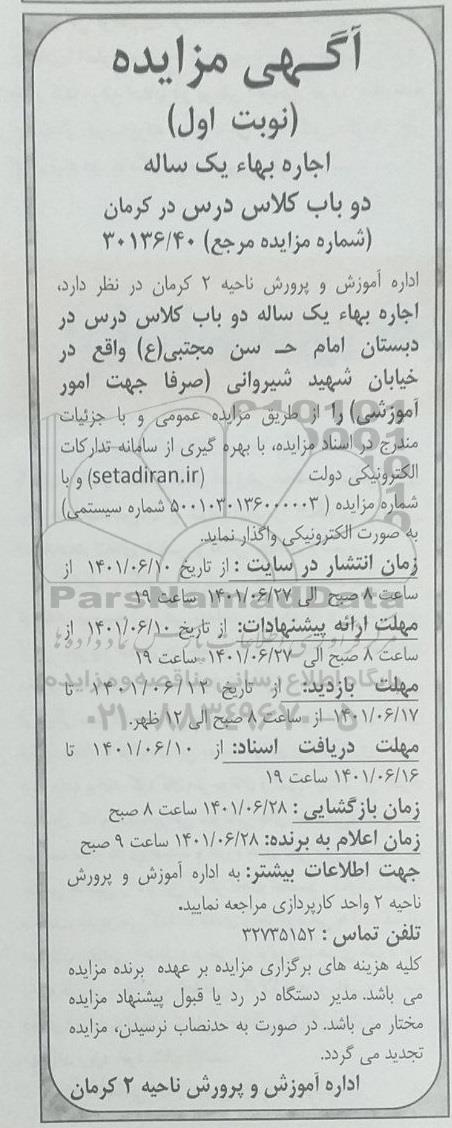 آگهی مزایده
(نوبت اول)
اجاره بهاء یک ساله
دو باب کلاس درس در کرمان
(شماره مزایده مرجع) ۳۰۱۳۶/۴۰
اداره آموزش و پرورش ناحیه ۲ کرمان در نظر دارد،
اجاره بهاء یک ساله دو باب کلاس درس در
دبستان امام حسن مجتبی(ع) واقع در
خیابان شهید شیروانی (صرفا جهت امور
آموزشی) را از طریق مزایده عمومی و با جزئیات
مندرج در اسناد مزایده، با بهره گیری از سامانه تدارکات
الکترونیکی دولت (setadiran.ir) و با
شماره مزایده (۵۰۰۱۰۳۰۱۳۶۰۰۰۰۰۳ شماره سیستمی)
به صورت الکترونیکی واگذار نماید.
زمان انتشار در سایت : از تاریخ ۱۴۰۱/۰۶/۱۰ از
ساعت ۸ صبح الی ۱۴۰۱/۰۶/۲۷ ساعت ۱۹
مهلت ارائه پیشنهادات: از تاریخ ۱۴۰۱/۰۶/۱۰ از
ساعت ۸ صبح الی ۱۴۰۱/۰۶/۲۷ ساعت ۱۹
مهلت بازدید: از تاریخ ۱۴۰۱/۰۶/۱۲ تا
۱۴۰۱/۰۶/۱۷ از ساعت ۸ صبح الی ۱۲ ظهر.
مهلت دریافت اسناد: از ۱۴۰۱/۰۶/۱۰ تا
۱۴۰۱/۰۶/۱۶ ساعت ۱۹
زمان بازگشایی : ۱۴۰۱/۰۶/۲۸ ساعت ۸ صبح
زمان اعلام به برنده: ۱۴۰۱/۰۶/۲۸ ساعت ۹ صبح
جهت اطلاعات بیشتر: به اداره آموزش و پرورش
ناحیه ۲ واحد کارپردازی مراجعه نمایید.
تلفن تماس : ۳۲۷۳۵۱۵۲
کلیه هزینه های برگزاری مزایده بر عهده برنده مزایده
می باشد. مدیر دستگاه در رد یا قبول پیشنهاد مزایده
مختار می باشد. در صورت به حدنصاب نرسیدن، مزایده
تجدید می گردد.
اداره آموزش و پرورش ناحیه ۲ کرمان
ParsNamadData
پایگاه اطلاع رسانی مناقصه و مزایده
۰۲۱-۸۸۳۴۹۶۷۰-۵